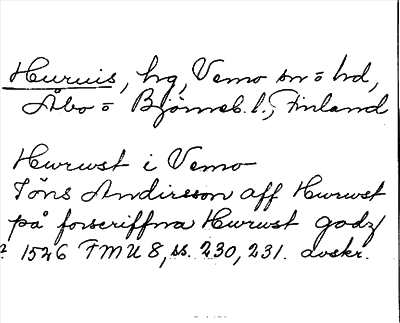 Huruis, hg, Vemo sn o hd,
Åbo o Björneb. l., Finland
Hwrwst i Vemo
Jöns Andirsson aff Hwrwst
på forscriffna Hwrwst godz
1526 FMU 8, ss. 230, 231. avskr.